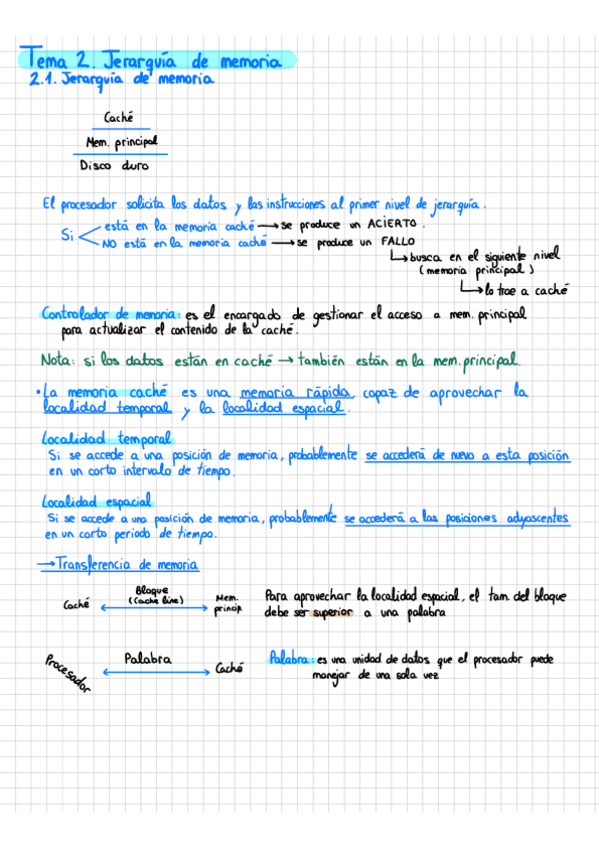 Tema 2. Jerarquía de memoria
2.1. Jerarquía de memoria
Caché
Mem. principal
Disco duro
El procesador solicita los datos y las instrucciones al primer nivel de jerarquía.
Si
está en la memoria caché → se produce un ACIERTO.
NO está en la memoria caché → se produce un FALLO
↳ busca en el siguiente nivel
(memoria principal)
↳ lo trae a caché
Controlador de memoria: es el encargado de gestionar el acceso a mem. principal
para actualizar el contenido de la caché.
Nota: si los datos están en caché → también están en la mem. principal.
• La memoria caché es una memoria rápida, capaz de aprovechar la
localidad temporal y la localidad espacial.
Localidad temporal
Si se accede a una posición de memoria, probablemente se accederá de nuevo a esta posición
en un corto intervalo de tiempo.
Localidad espacial
Si se accede a una posición de memoria, probablemente se accederá a las posiciones adyascentes
en un corto periodo de tiempo.
→ Transferencia de memoria
Caché
Bloque
(cache line)
Mem.
princip
Para aprovechar la localidad espacial, el tam. del bloque
debe ser superior a una palabra
Procesador
Palabra
Caché
Palabra: es una unidad de datos que el procesador puede
manejar de una sola vez